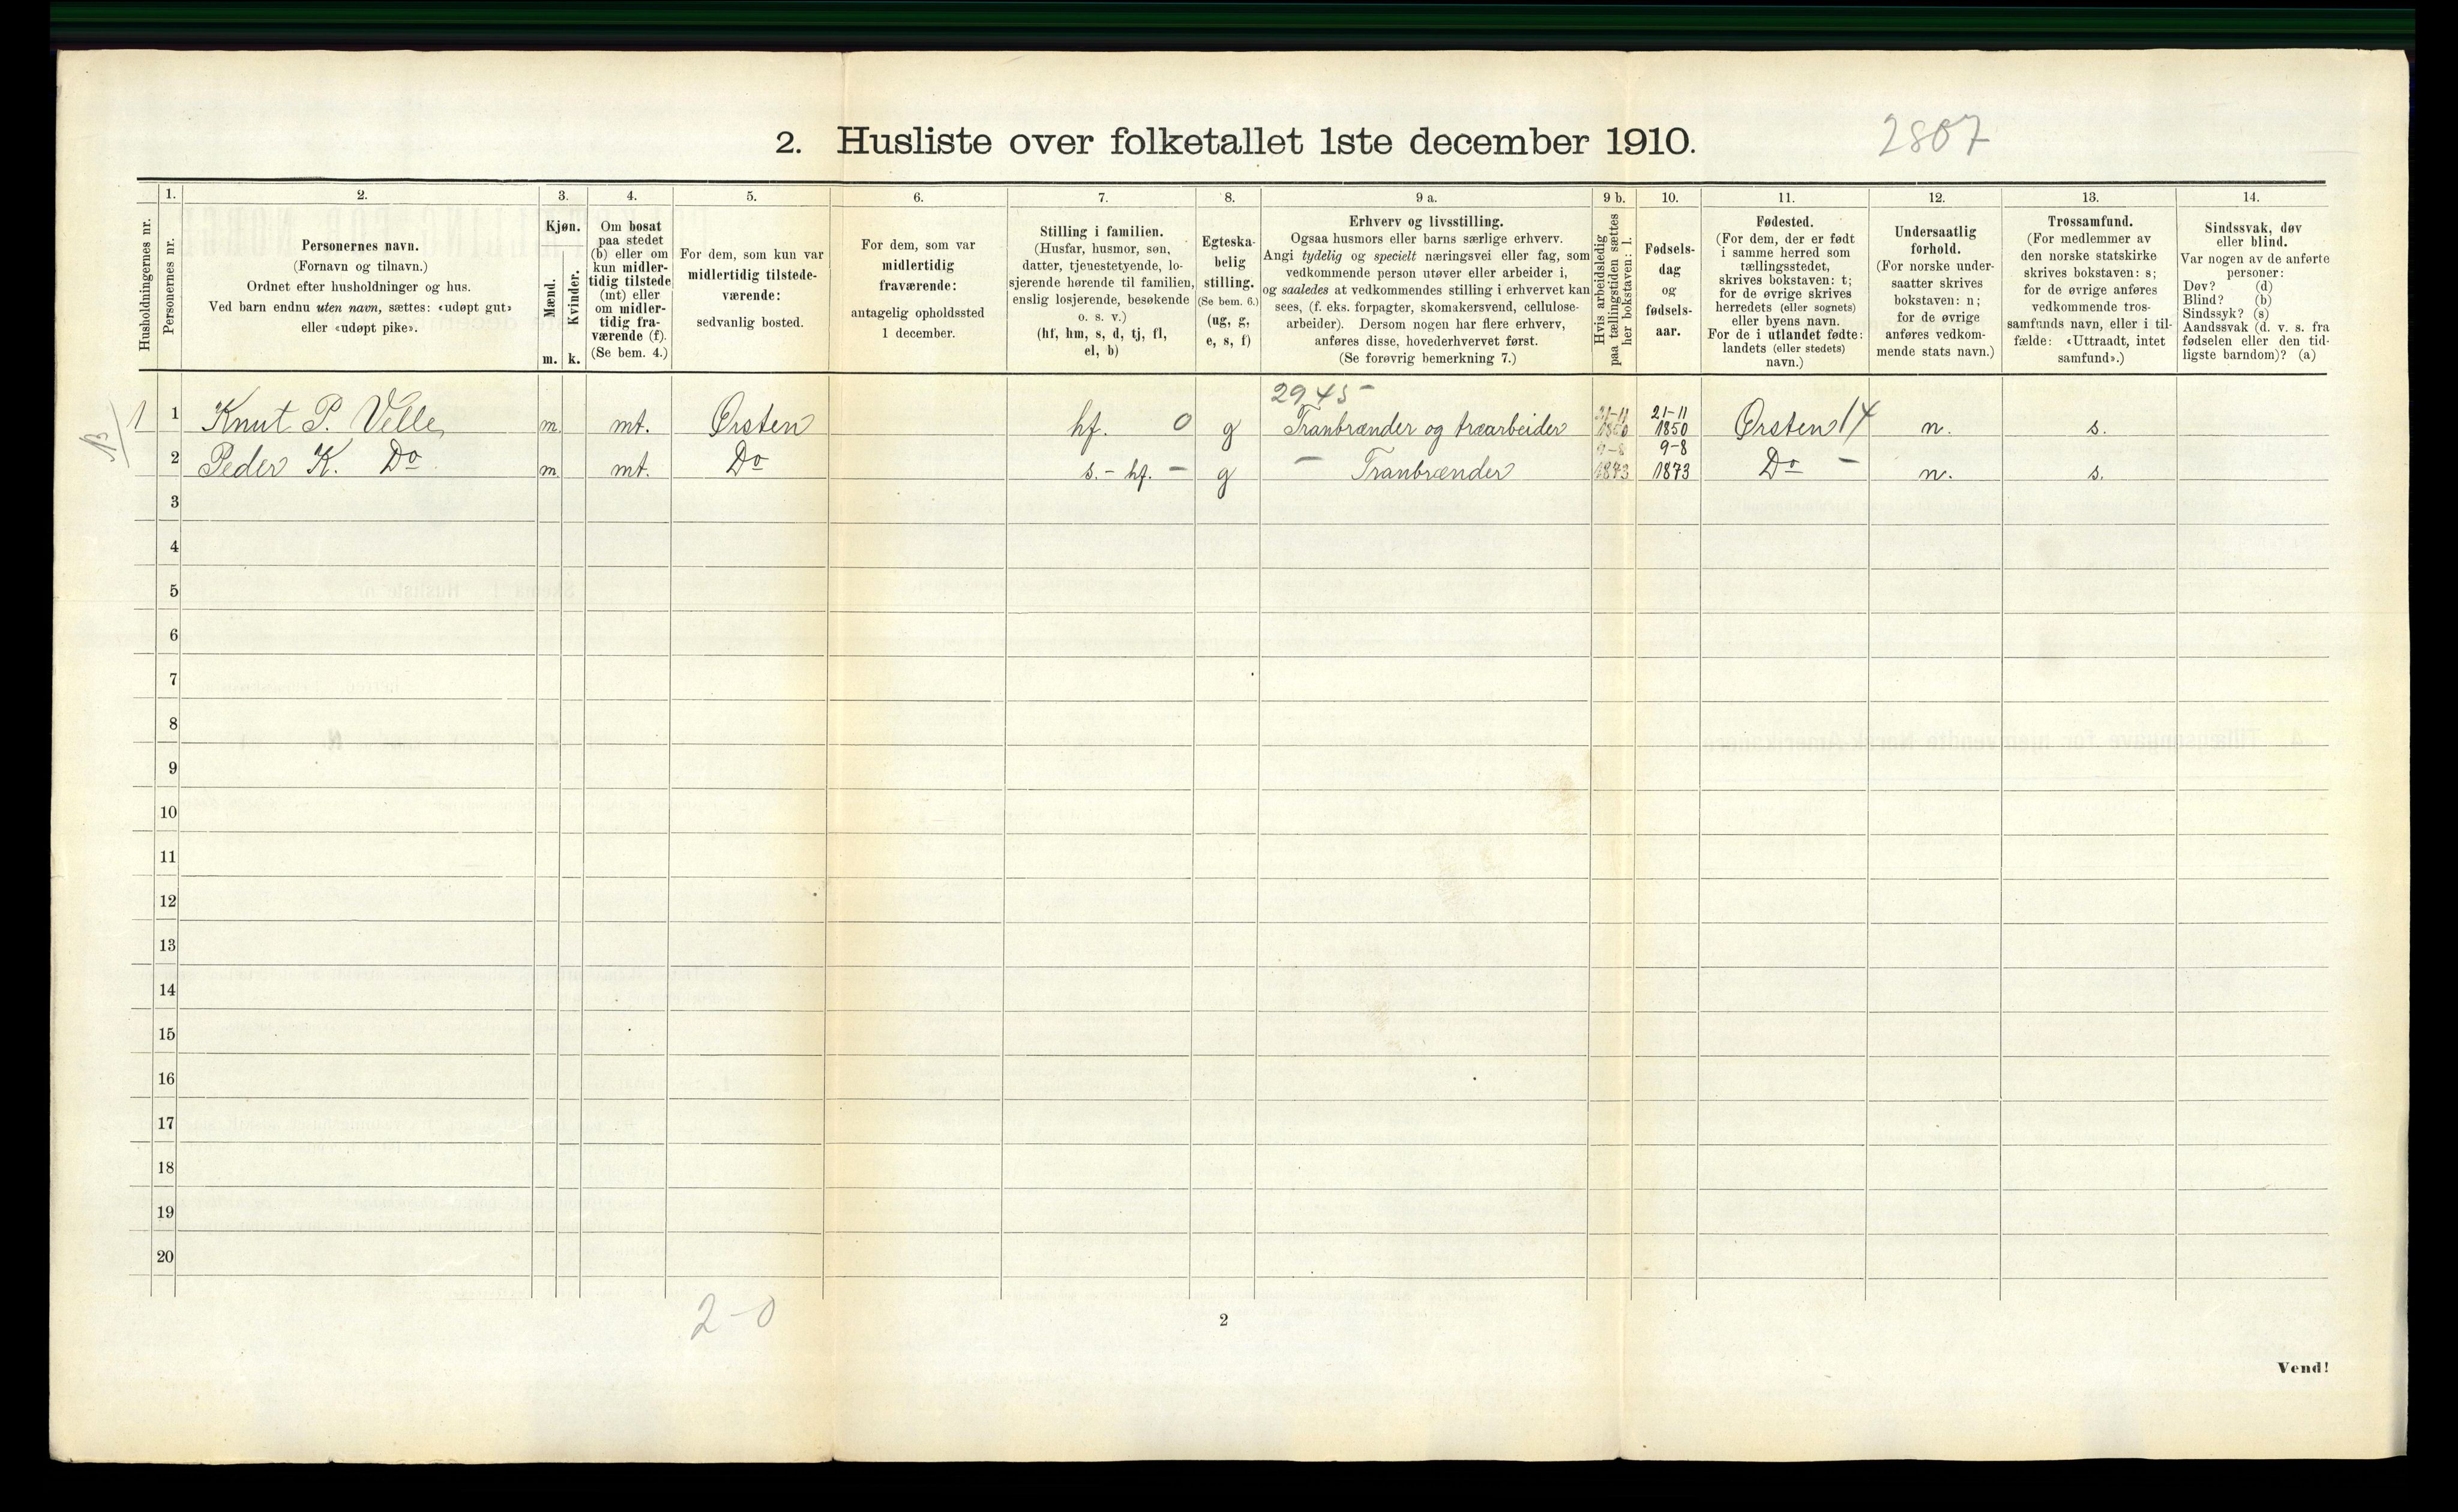 2. Husliste over folketallet 1ste december 1910.
2807
Husholdningernes nr.
1.
Personernes nr.
2.
Personernes navn.
(Fornavn og tilnavn.)
Ordnet efter husholdninger og hus.
Ved barn endnu uten navn, sættes: «udøpt gut»
eller «udøpt pike».
3.
Kjøn.
Mænd.
Kvinder.
m. k.
4.
Om bosat
paa stedet
(b) eller om
kun midler-
tidig tilstede
(mt) eller
om midler-
tidig fra-
værende (f).
(Se bem. 4.)
5.
For dem, som kun var
midlertidig tilstede-
værende:
sedvanlig bosted.
6.
For dem, som var
midlertidig
fraværende:
antagelig opholdssted
1 december.
7.
Stilling i familien.
(Husfar, husmor, søn,
datter, tjenestetyende, lo-
sjerende hørende til familien,
enslig losjerende, besøkende
o. s. v.)
(hf, hm, s, d, tj, fl,
el, b)
8.
Egteska-
belig
stilling.
(Se bem. 6.)
(ug, g,
e, s, f)
9 a.
Erhverv og livsstilling.
Ogsaa husmors eller barns særlige erhverv.
Angi tydelig og specielt næringsvei eller fag, som
vedkommende person utøver eller arbeider i,
og saaledes at vedkommendes stilling i erhvervet kan
sees, (f. eks. forpagter, skomakersvend, cellulose-
arbeider). Dersom nogen har flere erhverv,
anføres disse, hovederhvervet først.
(Se forøvrig bemerkning 7.)
9 b.
Hvis arbeidsledig
paa tællingstiden sættes
her bokstaven: l.
10.
Fødsels-
dag
og
fødsels-
aar.
11.
Fødested.
(For dem, der er født
i samme herred som
tællingsstedet,
skrives bokstaven: t;
for de øvrige skrives
herredets (eller sognets)
eller byens navn.
For de i utlandet fødte:
landets (eller stedets)
navn.)
12.
Undersaatlig
forhold.
(For norske under-
saatter skrives
bokstaven: n;
for de øvrige
anføres vedkom-
mende stats navn.)
13.
Trossamfund.
(For medlemmer av
den norske statskirke
skrives bokstaven: s;
for de øvrige anføres
vedkommende tros-
samfunds navn, eller i til-
fælde: «Uttraadt, intet
samfund».)
14.
Sindssvak, døv
eller blind.
Var nogen av de anførte
personer:
Døv? (d)
Blind? (b)
Sindssyk? (s)
Aandssvak (d. v. s. fra
fødselen eller den tid-
ligste barndom)? (a)
2945
1 1 Knut P. Velle m. mt. Ørsten hf. 0 g Tranbrænder og træarbeider 21-11 1850 21-11 1850 Ørsten 14 n. s.
2 Peder K. Do m. mt. Do s. - hf. - g - Tranbrænder 9-8 1873 9-8 1873 Do - n. s.
3
4
5
6
7
8
9
10
11
12
13
14
15
16
17
18
19
20
2-0
2
Vend!